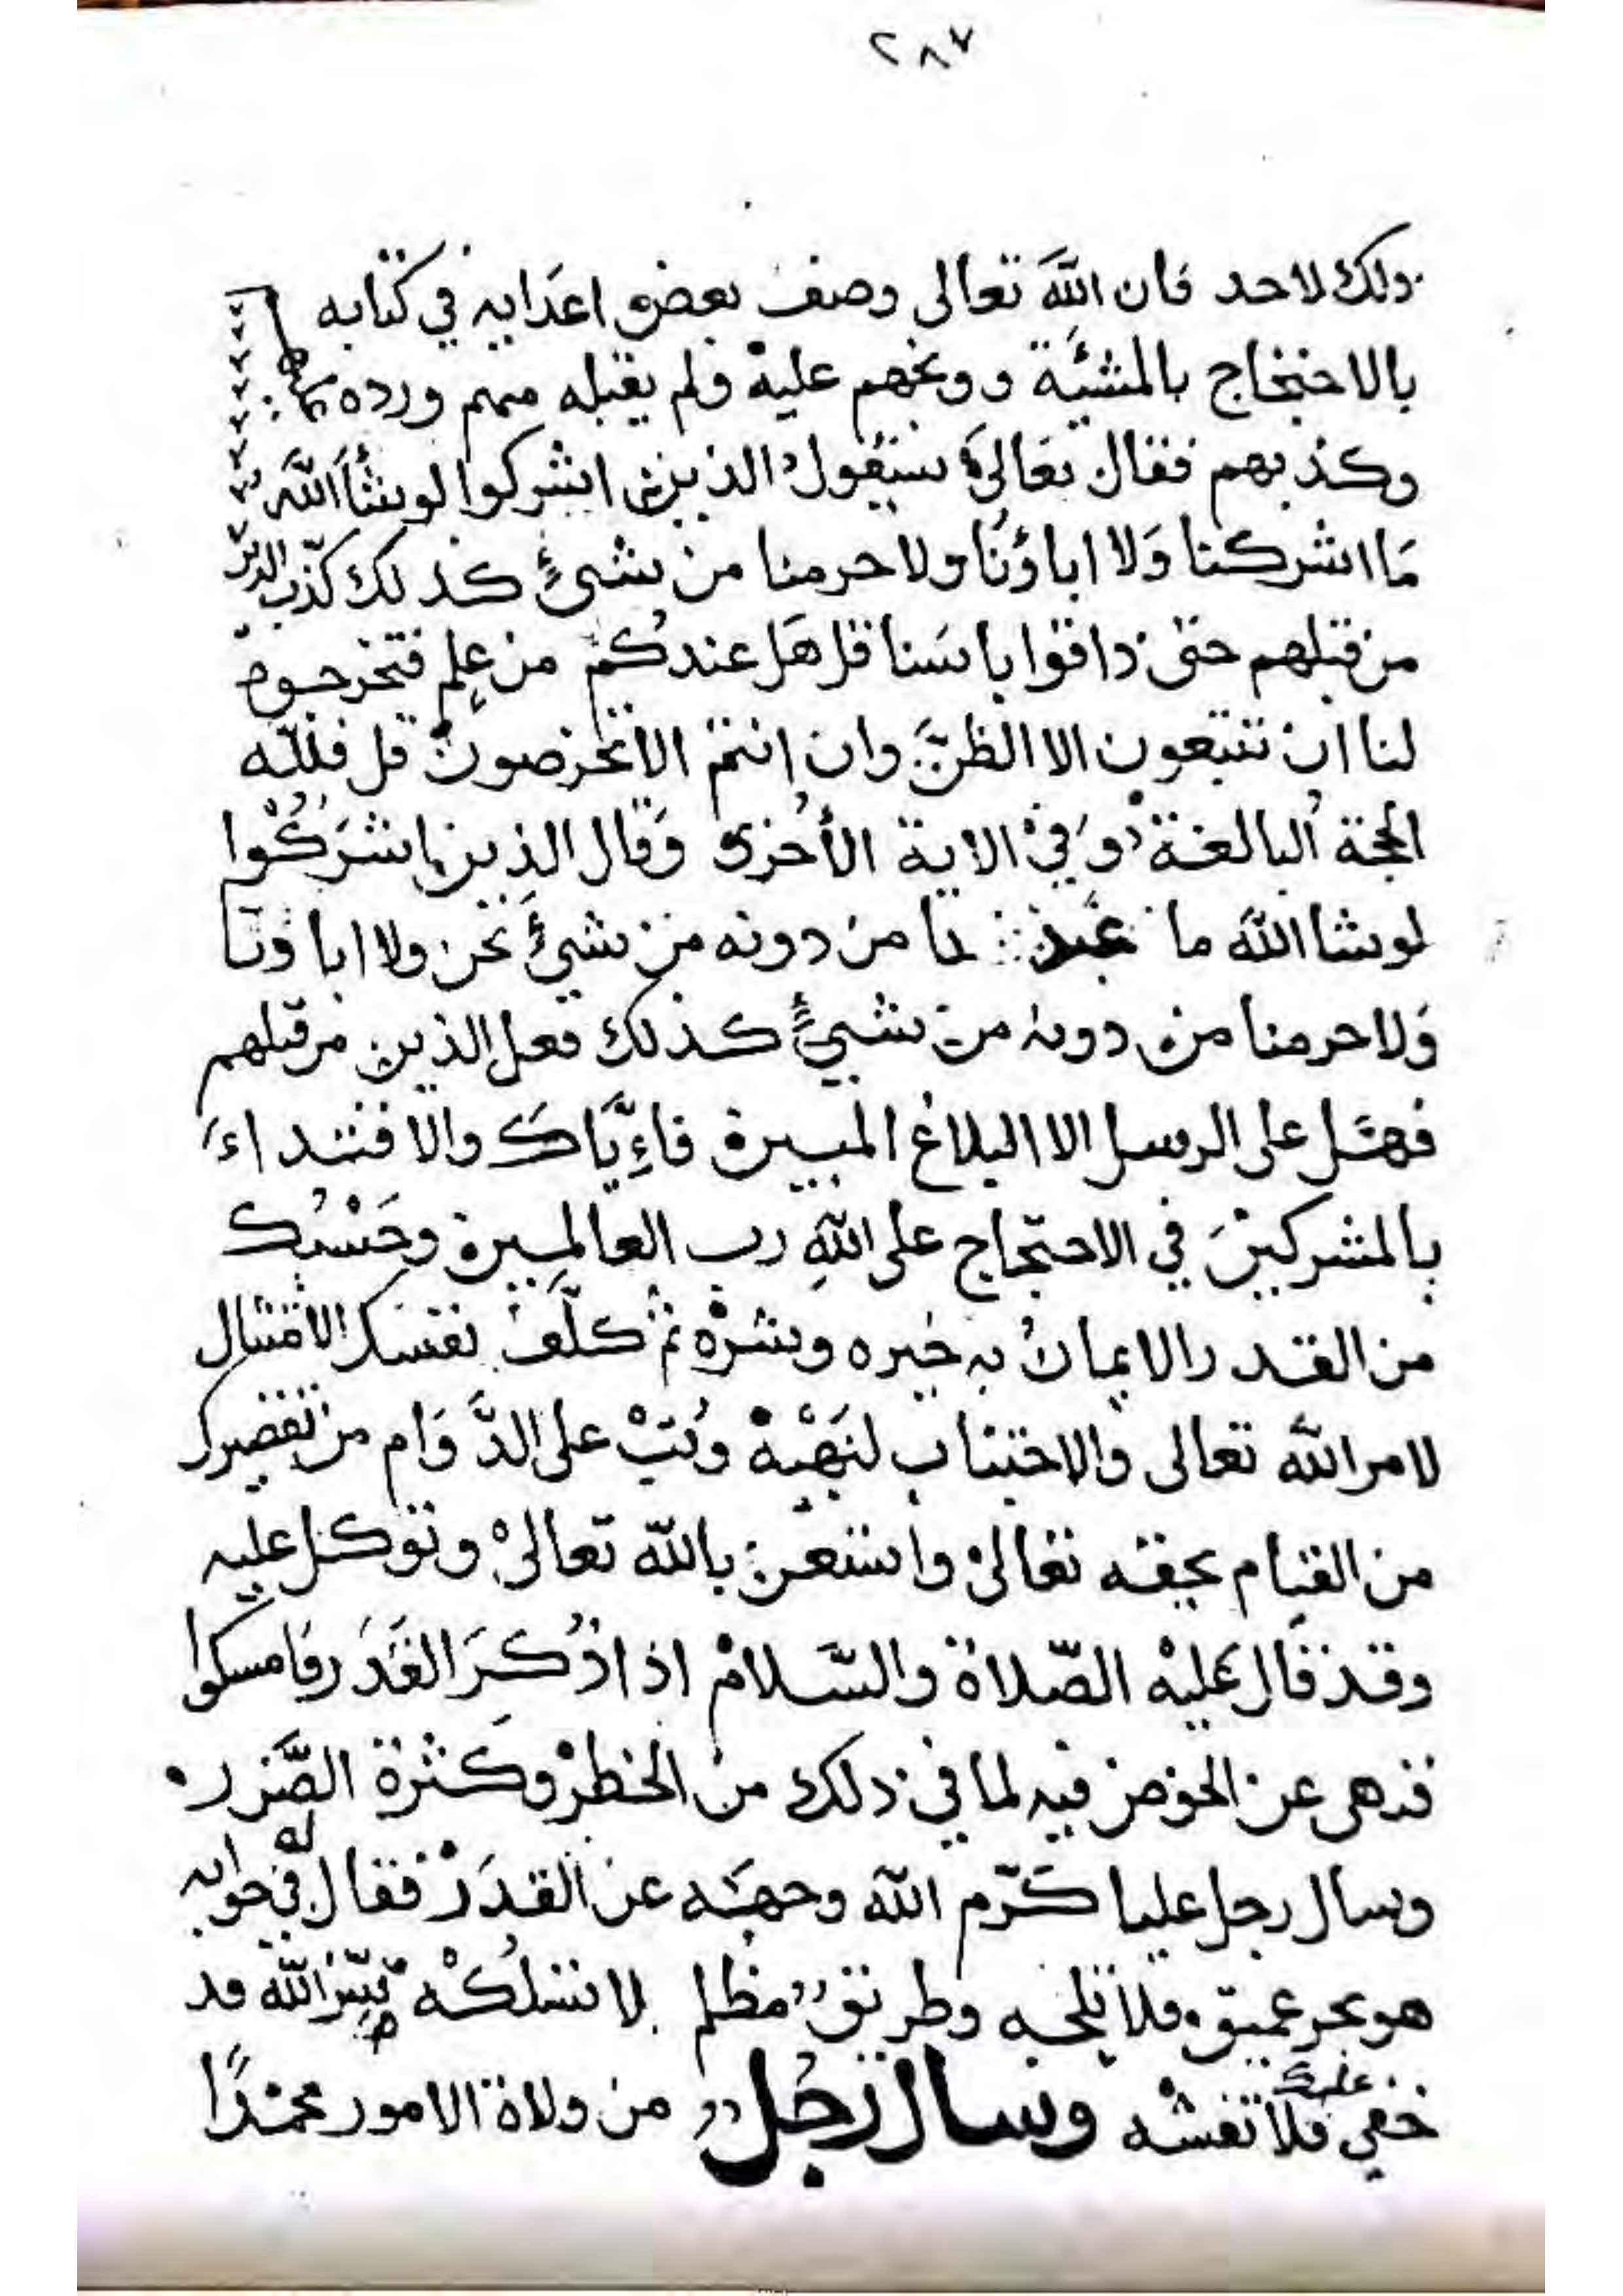 ٢٨٧
ذلك لاحد فان اللّهَ تعالى وصف بعض اعدَايه في كتابه
بالاحتجاج بالمشيَّة ووبخهم عليه ولم يقبله منهم ورده
وكذبهم فقال تعالى سيقول الذين اشركوا لوشاَاللّهَ
مَا اشركنا وَلا اباؤنَا ولا حرمنا من شيءٍ كذلك كذّب الذين
من قبلهم حتى ذاقوا باسَنا قل هَل عندكُم من عِلمٍ فتخرجوه
لنا ان تتبعون الا الظنَّ وان انتم الا تخرصون قل فللّه
الحجة البالغة وَفي الاية الأخرى وَقال الذين اشرَكُوا
لوشا اللّهَ ما عبد نا من دونه من شيءٍ نحن ولا اباونَا
وَلا حرمنا من دونه من شيءٍ كذلك فعل الذين من قبلهم
فهَل على الرسل الا البلاغ المبين فاءِيَّاكَ والاقتداءَ
بالمشركينَ في الاحتجاج على اللّهِ رب العالمِين وحَسْبك
من القدر الايمانُ به خيره وشره ثم كلَّف نفسك الامتثال
لامر اللّه تعالى والاجتناب لنَهْيِه وَتُبْ على الدَّوَام من تقصيرك
من القيام بحقه تعالى واستعن باللّه تعالى وتوكل عليه
وقد قال عليْه الصّلاة والسّلام اذا ذُكِرَ القَدَر فامسكوا
فنهى عن الخوض فيه لما في ذلك من الخطر وكثرة الضّرر
وسال رجل عليا كرّم اللّه وجهَه عن القدَر فقال له في جوابه
هو بحر عميق فلا تلجه وطريق مظلم لا تسْلكْه سِرّ اللّه قد
خفي عليك فلا تفشه وسال رَجُل من ولاة الامور محمدًا